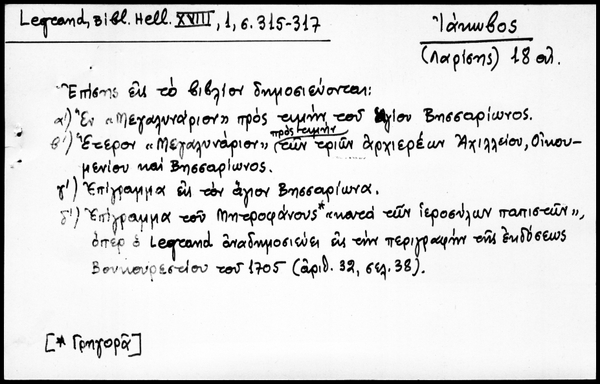 Legrand, Bibl. Hell. XVIII, 1, σ. 315-317
Ἰάκωβος
(Λαρίσης) 18 αἰ.
Ἐπίσης εἰς τὸ βιβλίον δημοσιεύονται:
α') Ἓν «Μεγαλυνάριον» πρὸς τιμὴν τοῦ ἁγίου Βησσαρίωνος.
β') Ἕτερον «Μεγαλυνάριον» πρὸς τιμὴν τῶν τριῶν ἀρχιερέων Ἀχιλλείου, Οἰκου-
μενίου καὶ Βησσαρίωνος.
γ') Ἐπίγραμμα εἰς τὸν ἅγιον Βησσαρίωνα.
δ') Ἐπίγραμμα τοῦ Μητροφάνους* «κατὰ τῶν ἱεροσύλων παπιστῶν»,
ὅπερ ὁ Legrand ἀναδημοσιεύει εἰς τὴν περιγραφὴν τῆς ἐκδόσεως
Βουκουρεστίου τοῦ 1705 (ἀριθ. 32, σελ. 38).
[* Γρηγορᾶ]